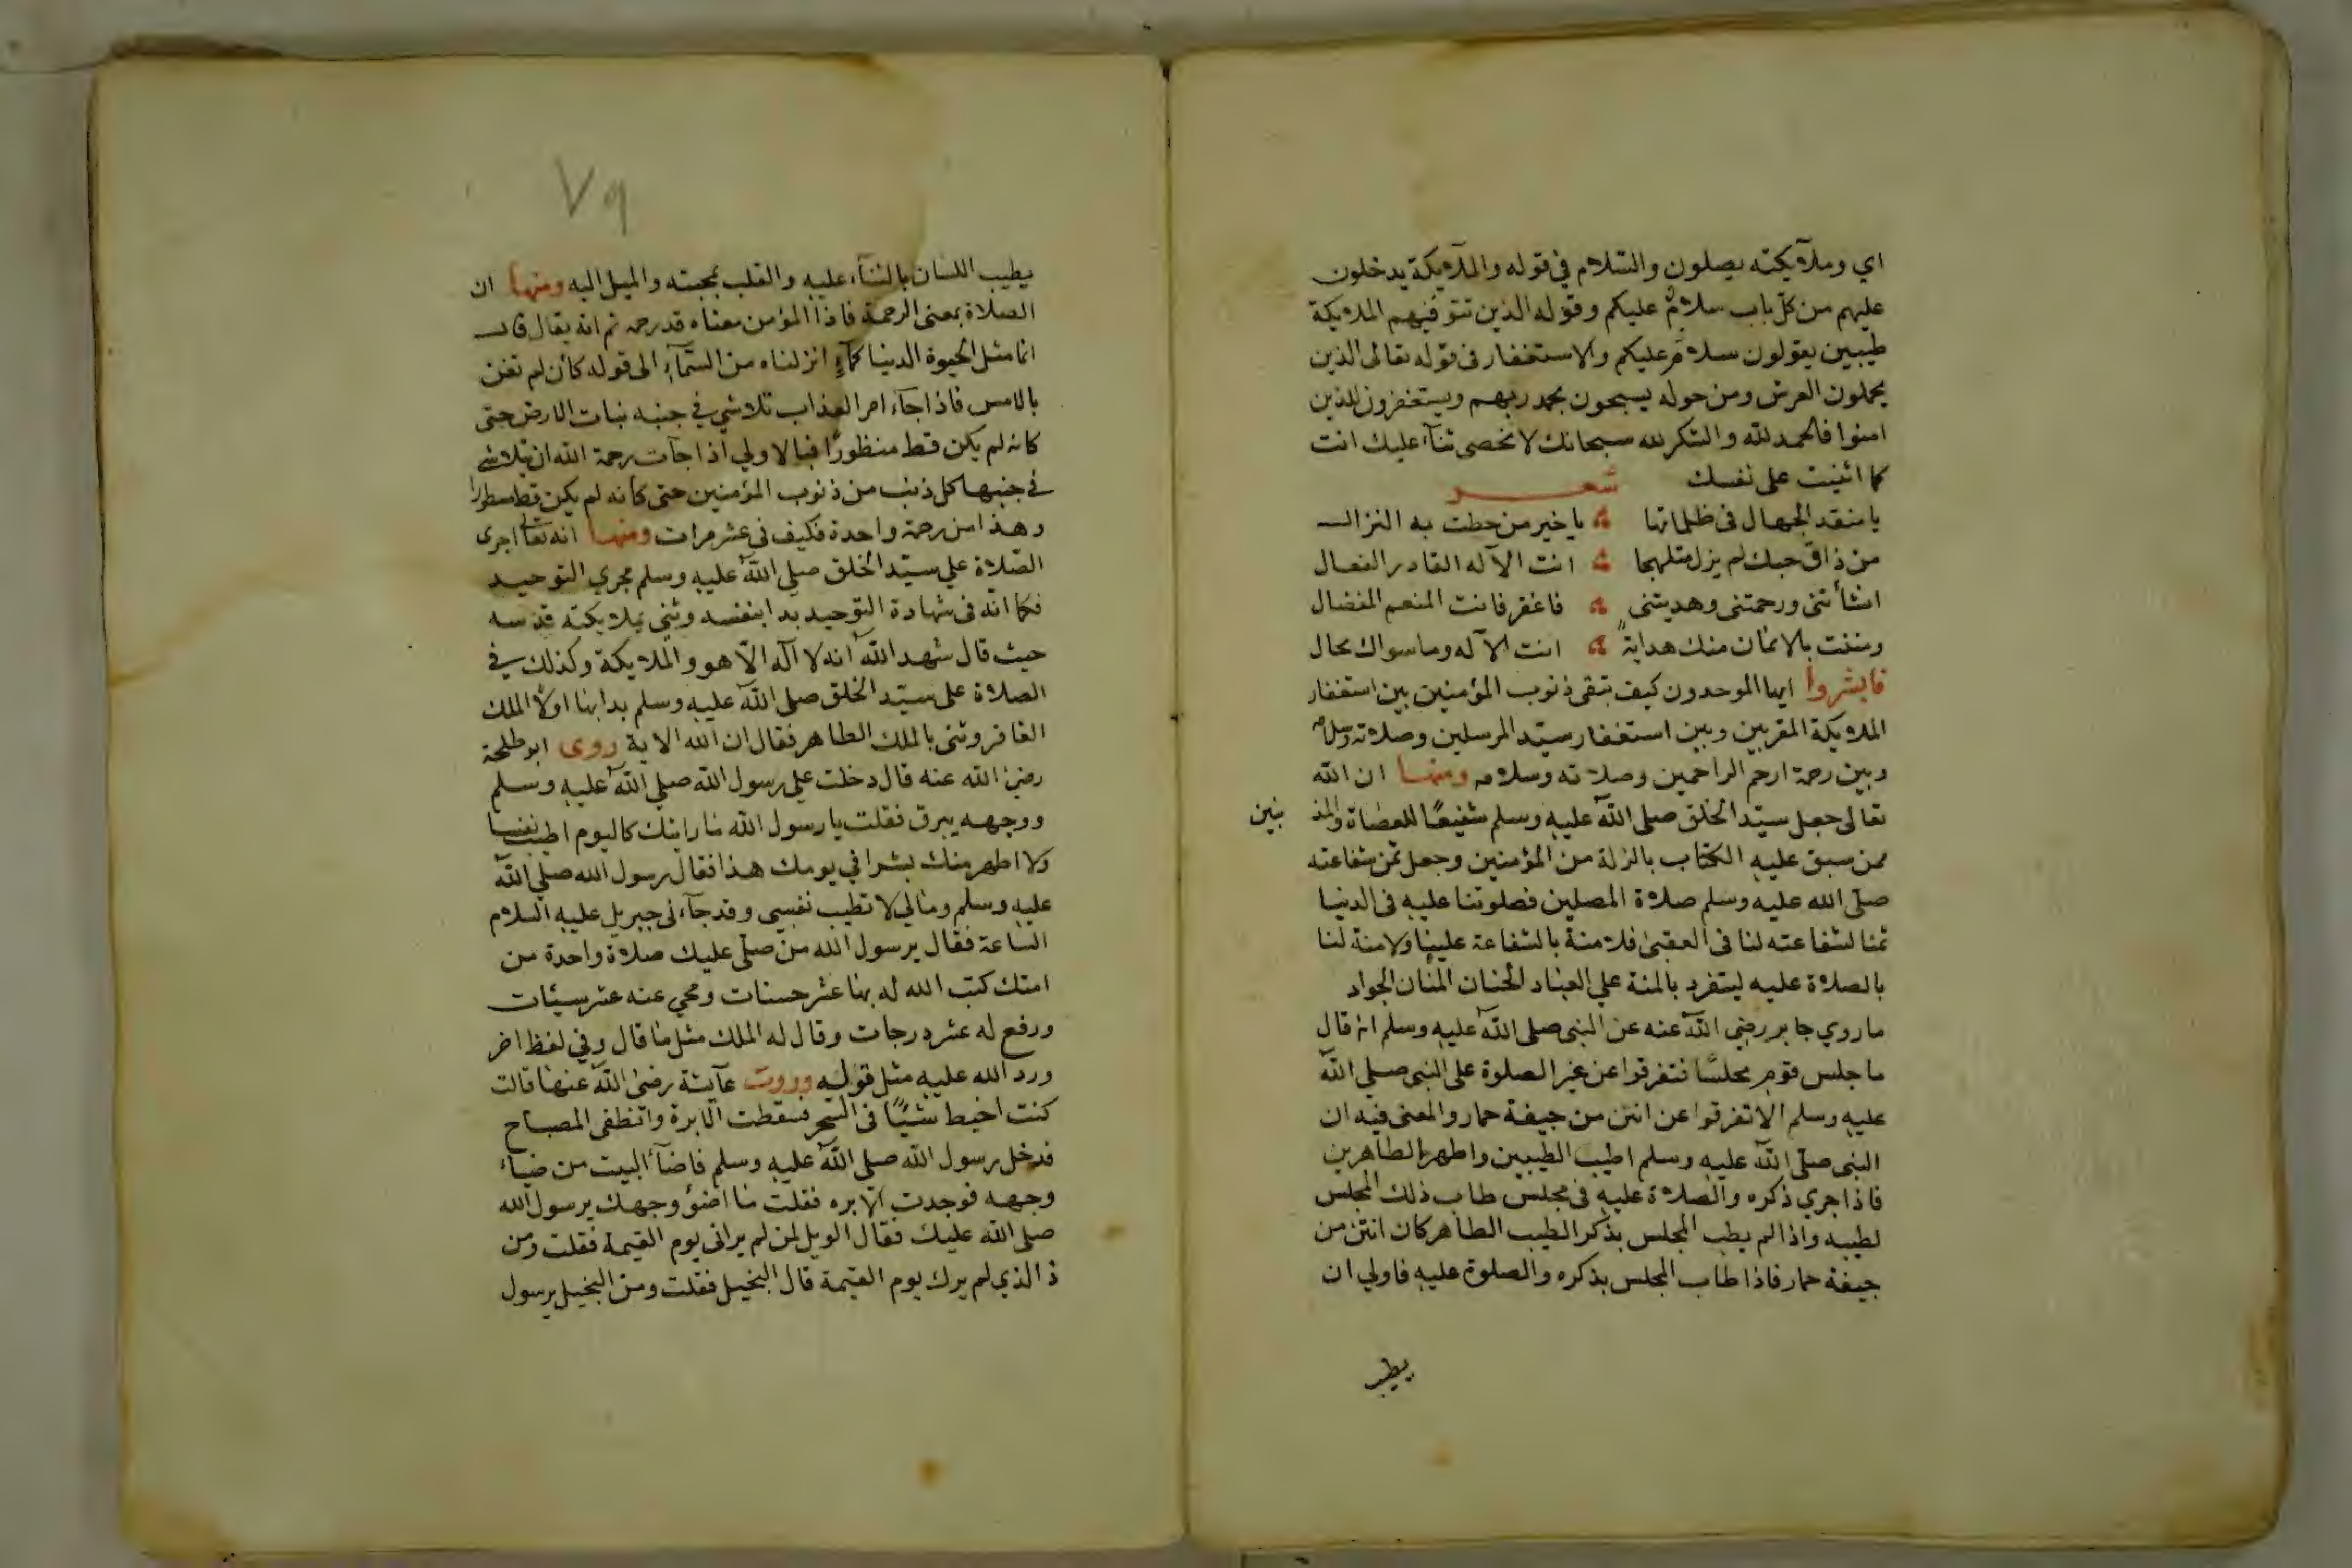 اي وملآيكته يصلون والسّلام في قوله والملآيكة يدخلون
عليهم من كل باب سلامٌ عليكم وقوله الذين تتوفيهم الملايكة
طيبين يقولون سلام عليكم والاستغفار فى قوله تعالى الذين
يحملون العرش ومن حوله يسبحون بحمد ربهم ويستغفرون للذين
امنوا فالحمد لله والشكر لله سبحانك لا نحصى ثنآء عليك انت
كما اثنيت على نفسك شعر
يا منقد الجهال فى ظلماتها يا خير من حطت به النزال
من ذاق حبك لم يزل متلهجا انت الآله القادر الفعال
انشأتنى ورحمتنى وهديتنى فاغفر فانت المنعم المفضال
ومننت بالايمان منك هدايةً انت الآله وما سواك محال
فابشروا ايها الموحدون كيف تبقى ذنوب المؤمنين بين استغفار
الملايكة المقربين وبين استغفار سيّد المرسلين وصلاته وسلامه
وبين رحمة ارحم الراحمين وصلاته وسلامه ومنها ان الله
تعالى جعل سيّد الخلق صلى اللّه عليه وسلم شفيعًا للعصاة والمذ نبين
ممن سبق عليه الكتاب بالزلة من المؤمنين وجعل ثمن شفاعته
صلى الله عليه وسلم صلاة المصلين فصلوتنا عليه فى الدنيا
ثمنا لشفاعته لنا فى العقبى فلا منة بالشفاعة علينا ولا منة لنا
بالصلاة عليه ليتفرد بالمنة علي العباد الحنان المنان الجواد
ما روي جابر رضي اللّه عنه عن النبى صلى اللّه عليه وسلم انه قال
ما جلس قوم مجلسًا فتفرقوا عن غير الصلوة على النبى صلى اللّه
عليه وسلم الا تفرقوا عن انتن من جيفة حمار والمعنى فيه ان
النبى صلى اللّه عليه وسلم اطيب الطيبين واطهر الطاهرين
فاذا جري ذكره والصلاة عليه فى مجلس طاب ذلك المجلس
لطيبه واذا لم يطب المجلس بذكر الطيب الطاهر كان انتن من
جيفة حمار فاذا طاب المجلس بذكره والصلوة عليه فاولي ان
يطيب
٧٩
يطيب اللسان بالثنآء عليه والقلب بمحبته والميل اليه ومنها ان
الصلاة بمعنى الرحمة فاذا المؤمن معناه قد رحمه ثم انه يقال قال
انما مثل الحيوة الدنيا كمآءٍ انزلناه من السّمآء الى قوله كأن لم تغن
بالامس فاذا جآء امر العذاب تلاشي في جنبه نبات الارض حتى
كانه لم يكن قط منظورًا فبالاولي اذا جآت رحمة الله ان يتلاشى
في جنبها كل ذنب من ذنوب المؤمنين حتى كانه لم يكن قط مسطورا
وهذا من رحمة واحدة فكيف فى عشر مرات ومنها انه تعا اجرى
الصّلاة علي سيّد الخلق صلى اللّه عليه وسلم مجري التوحيد
فكما انّه فى شهادة التوحيد بدا بنفسه وثنى بملايكة قدسه
حيث قال شهد اللّه انه لا آله الّا هو والملايكة وكذلك في
الصلاة على سيّد الخلق صلى اللّه عليه وسلم بدا بها اولًا الملك
الغافر وثنى بالملك الطاهر فقال ان الله الاية روى ابو طلحة
رضى الله عنه قال دخلت علي رسول الله صلى اللّه عليه وسلم
ووجهه يبرق فقلت يا رسول الله ما رايتك كاليوم اطيب نفسا
ولا اظهر منك بشرا في يومك هذا فقال رسول الله صلى اللّه
عليه وسلم ومالي لا تطيب نفسي وقد جآءنى جبريل عليه السلام
السّاعة فقال يرسول الله من صلى عليك صلاة واحدة من
امتك كتب الله له بها عشر حسنات ومحي عنه عشر سيئات
ورفع له عشر درجات وقال له الملك مثل ما قال وفي لفظ اخر
ورد الله عليه مثل قوله وروت عآيشة رضى اللّه عنها قالت
كنت اخيط شيئًا فى السّحر فسقطت الابرة وانطفى المصباح
فدخل رسول الله صلى اللّه عليه وسلم فاضآء البيت من ضياء
وجهه فوجدت الابره فقلت ما اضوء وجهك يرسول الله
صلى الله عليك فقال الويل لمن لم يرانى يوم القيمة فقلت ومن
ذ الذي لم يرك يوم القيمة قال البخيل فقلت ومن البخيل يرسول